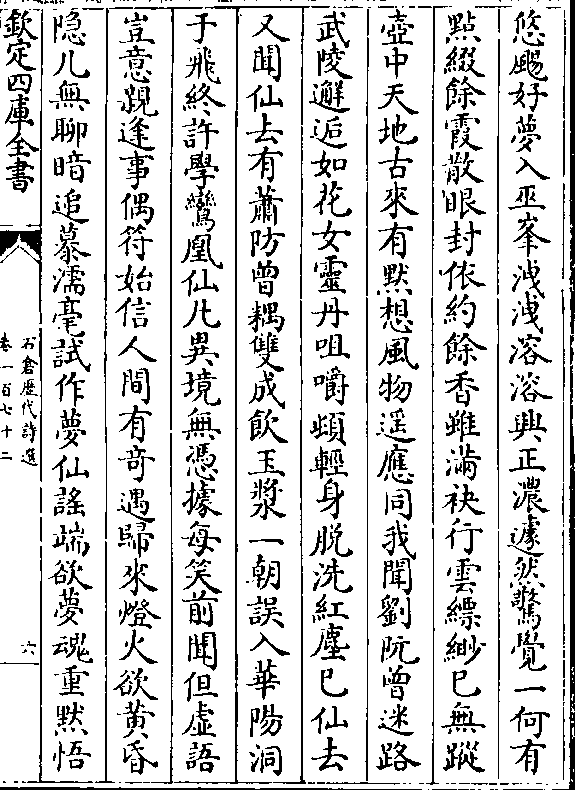 悠颺好夢入巫峯洩洩溶溶興正濃遽然驚覺一何有
點綴餘霞散眼封依約餘香雖滿袂行雲縹緲已無蹤
壺中天地古來有默想風物遥應同我聞劉阮曾迷路
武陵邂逅如花女靈丹咀嚼頓輕身脱洗紅塵已仙去
又聞仙去有蕭防曾耦雙成飲玉漿一朝誤入華陽洞
于飛終許學鸞凰仙凡異境無憑據每笑前聞但虚語
豈意親逢事偶符始信人間有竒遇歸來燈火欲黄昏
隐几無聊暗追慕濡毫試作夢仙謠端欲夢魂重黙悟
欽定四庫全書
石倉歴代詩選
卷一百七十二
六